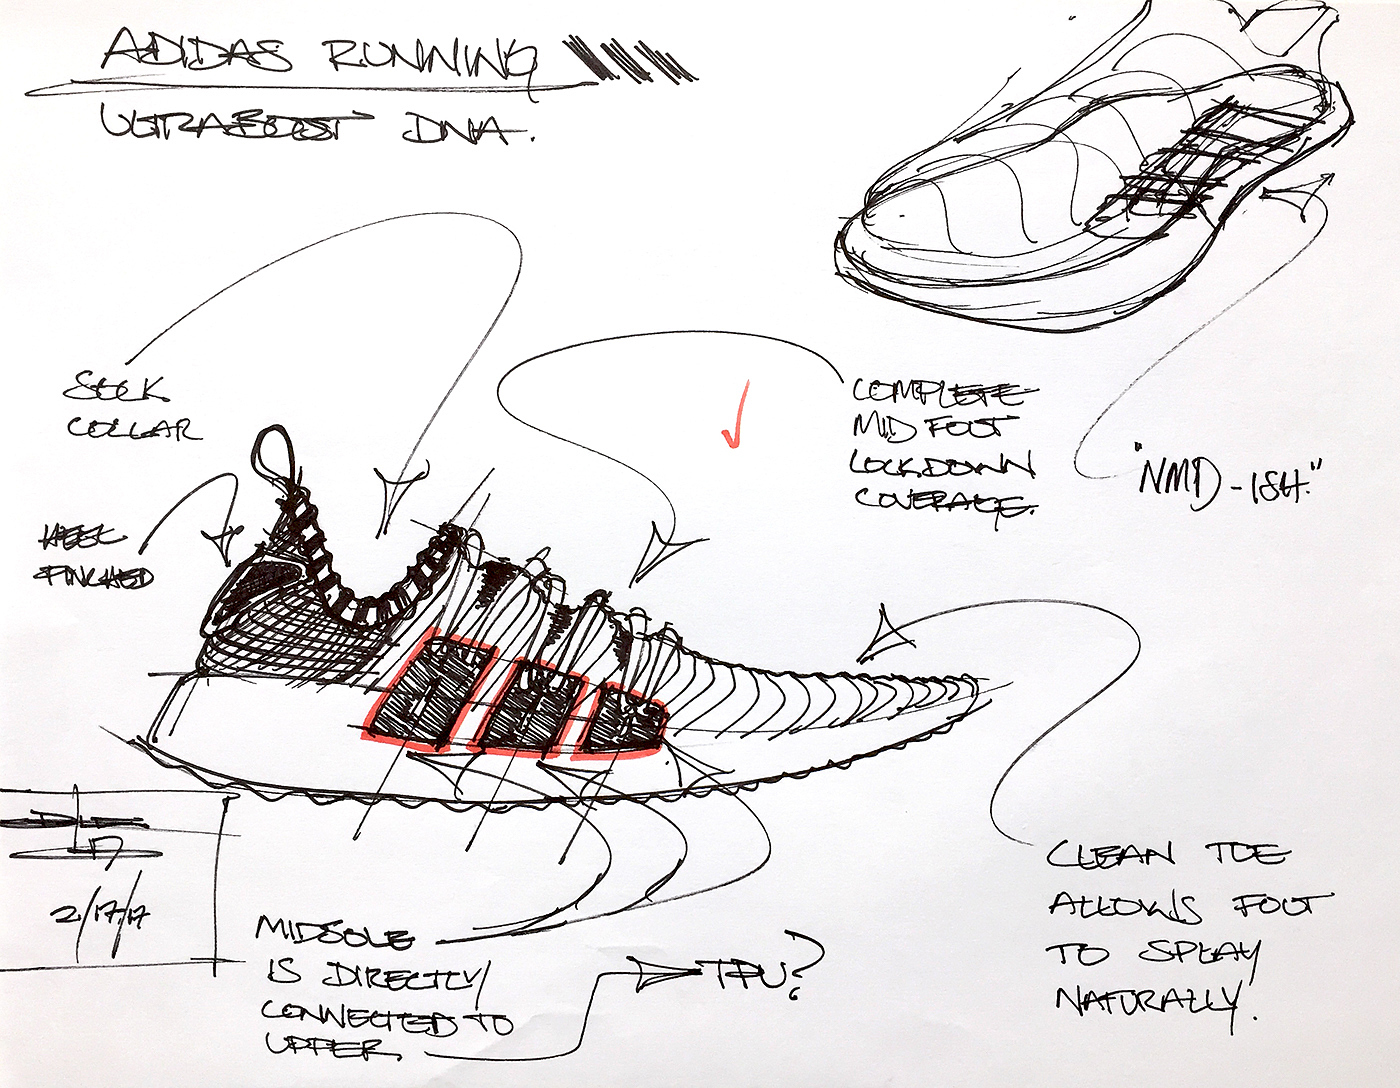 ADIDAS RUNNING
ULTRABOOST DNA.
SOCK
COLLAR
HEEL
PINCHED
COMPLETE
MID FOOT
LOCKDOWN
COVERAGE.
"NMD-ISH."
CLEAN TOE
ALLOWS FOOT
TO SPLAY
NATURALLY.
2/17/17
MIDSOLE
IS DIRECTLY
CONNECTED TO
UPPER.
TPU?